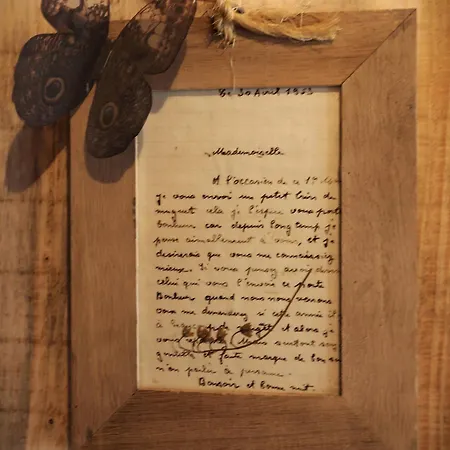 Le 30 Avril 1923
Mademoiselle
A l'occasion de ce 1er Mai
je vous envoi un petit brin de
muguet cela je l'espère vous porte
bonheur car depuis longtemp je
pense aimablement à vous, et je
desirerais que vous me connaissiez
mieux. Si vous
celui qui vous l'envoie ce porte
Bonheur quand nous nous verrons
vous me demanderez si cette année il
à et alors je
vous Mais surtout soyez
gentille et faite marque de
n'en parler à personne.
Bonsoir et bonne nuit